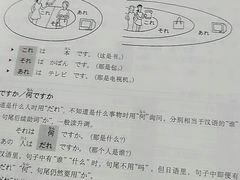 あれ
それ
これ
あれ
▶ これ は 本 です。（这是书。）
▶ それ は かばん です。（那是包。）
▶ あれ は テレビ です。（那是电视机。）
ですか/何ですか
道是什么人时用"だれ"，不知道是什么事物时用"何"询问，分别相当于汉语的"谁"
句尾后续助词"か"，一般读升调。
それは 何 ですか。（那是什么？）
あの 人は だれ ですか。（那个人是谁？）
汉语里，句子中有"谁""什么"时，句尾不用"吗"，但日语里，句子中即使有
"何"，句尾仍然要用"か"。